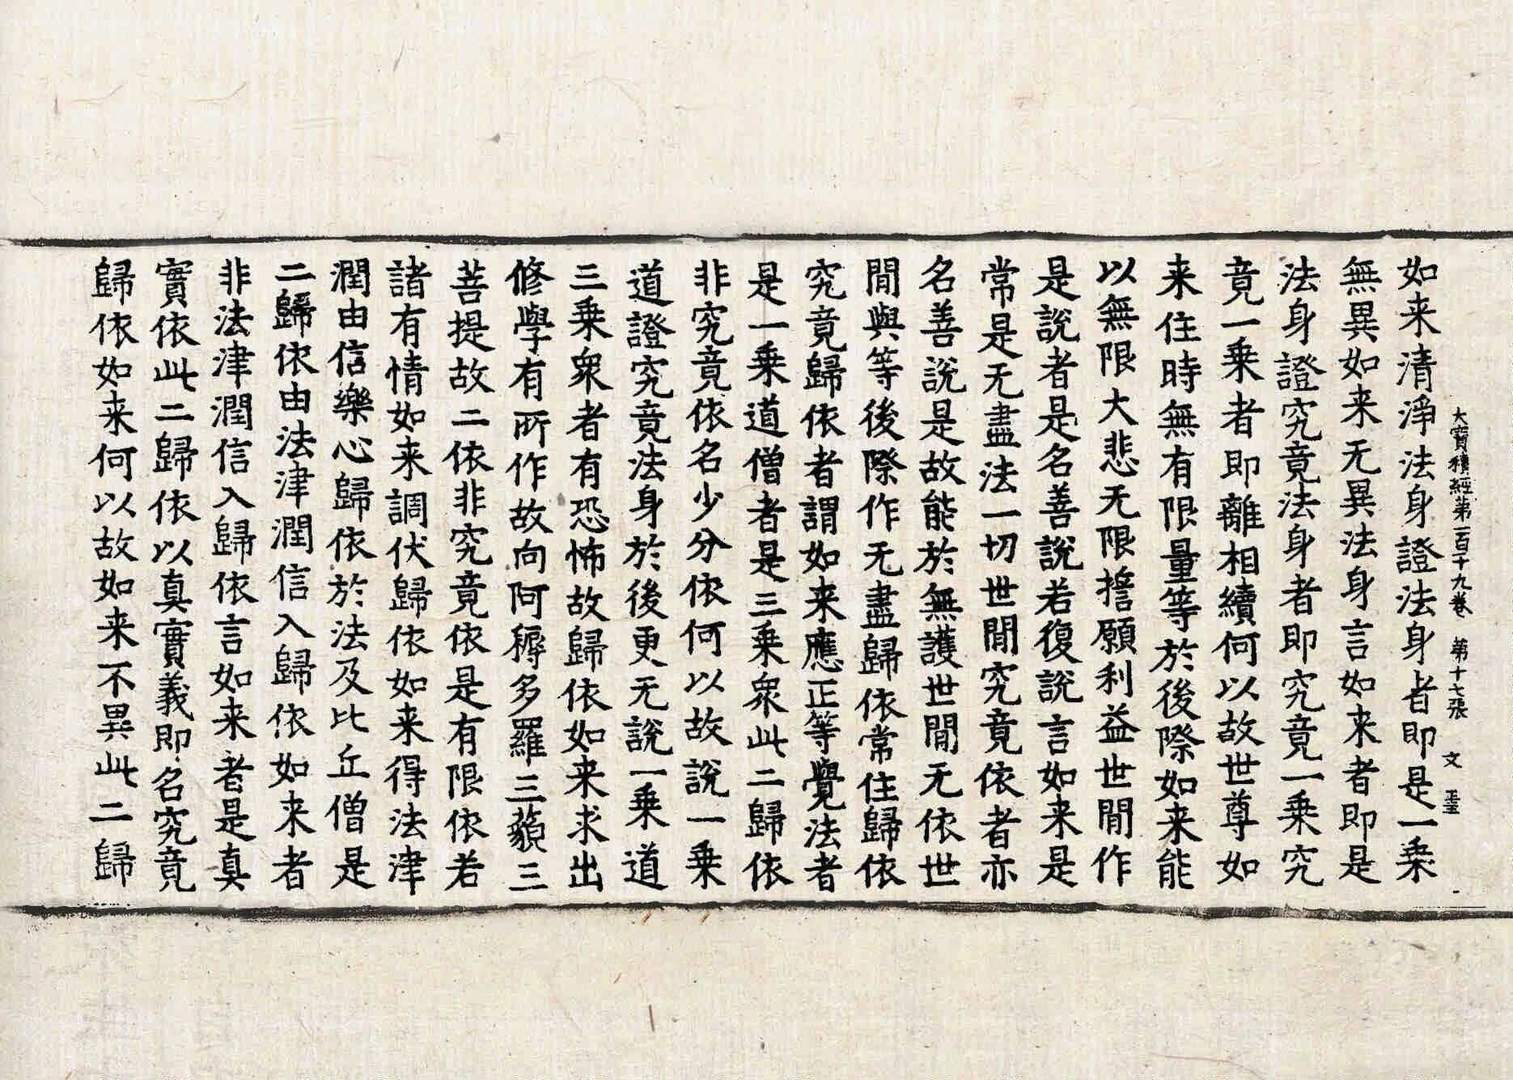 大寶積經第一百十九卷 第十七張 文
如来清淨法身證法身者即是一乗
無異如来无異法身言如来者即是
法身證究竟法身者即究竟一乗究
竟一乗者即離相續何以故世尊如
来住時無有限量等於後際如来能
以無限大悲无限誓願利益世閒作
是說者是名善說若復說言如来是
常是无盡法一切世閒究竟依者亦
名善說是故能於無護世閒无依世
閒與等後際作无盡歸依常住歸依
究竟歸依者謂如来應正等覺法者
是一乗道僧者是三乗衆此二歸依
非究竟依名少分依何以故說一乗
道證究竟法身於後更无說一乗道
三乗衆者有恐怖故歸依如来求出
修學有所作故向阿耨多羅三藐三
菩提故二依非究竟依是有限依若
諸有情如来調伏歸依如来得法津
潤由信樂心歸依於法及比丘僧是
二歸依由法津潤信入歸依如来者
非法津潤信入歸依言如来者是真
實依此二歸依以真實義即名究竟
歸依如来何以故如来不異此二歸